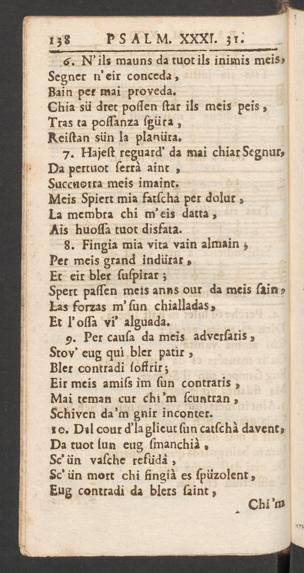 138 PSALM. XXXI. 31.
6. N'ils mauns da tuot ils inimis meis,
Segner n'eir conceda,
Bain per mai proveda.
Chia sü dret possen star ils meis peis,
Tras ta possanza sgüra,
Reistan sün la planüra.
7. Hajest reguard' da mai chiar Segnur,
Da pertuot serrà aint,
Succuorra meis imaint.
Meis Spiert mia fatscha per dolur,
La membra chi m'eis datta,
Ais huossa tuot disfata.
8. Fingia mia vita vain almain,
Per meis grand indürar,
Et eir bler suspirar;
Spert passen meis anns our da meis sain,
Las forzas m'sun chialladas,
Et l'ossa vi' alguada.
9. Per causa da meis adversaris,
Stov' eug quì bler patir,
Bler contradi soffrir;
Eir meis amiss im sun contraris,
Mai teman cur chi'm scuntran,
Schiven da'm gnir inconter.
10. Dal cour d'la glieut sun catschà davent,
Da tuot sun eug smanchià,
Sc'ün vasche refüdà,
Sc'ün mort chi fingià es spüzolent,
Eug contradi da blers saint,
Chi'm